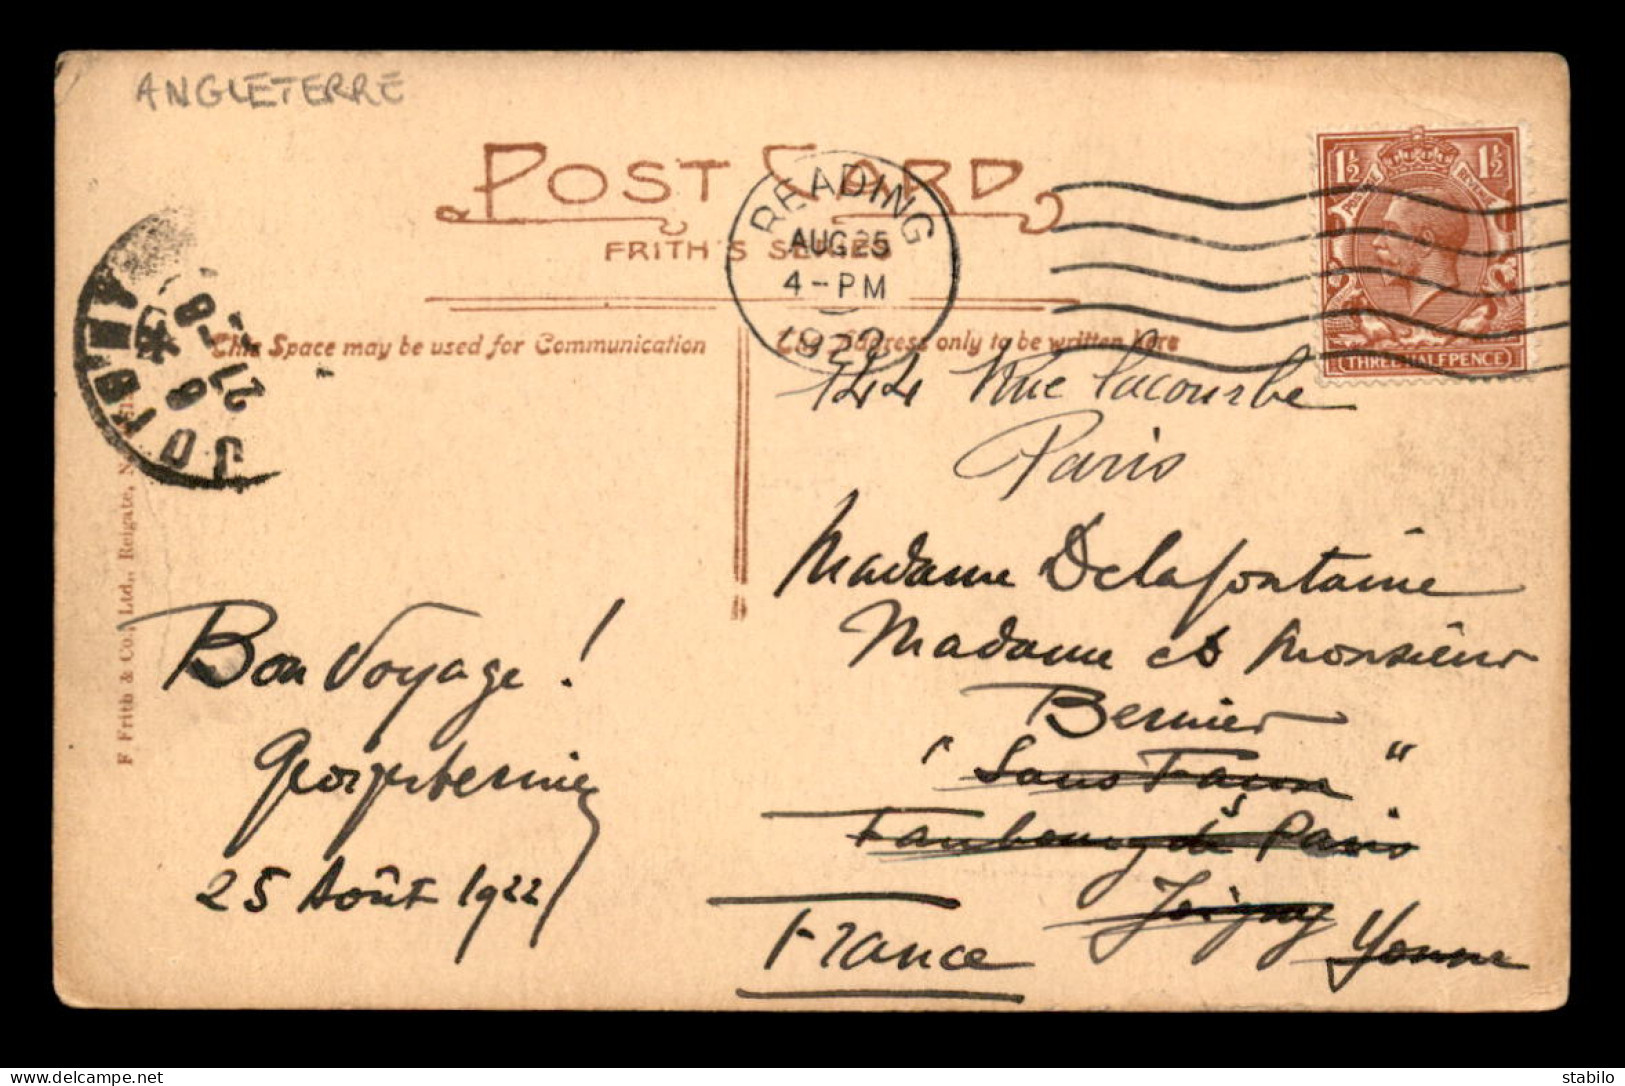 ANGLETERRE
POST CARD
FRITH'S SERIES
READING
AUG 25
4-PM
1922
1½ 1½
POSTAGE REVENUE
THREE HALFPENCE
JOIGNY
27 -8
This Space may be used for Communication
The Address only to be written here
144 Rue Lecourbe
Paris
Madame Delafontaine
Madame et Monsieur
Bernier
Faubourg de Paris
Joigny Yonne
France
Bon Voyage!
25 Août 1922
F Frith & Co., Ltd., Reigate,
delcampe.net
stabilo